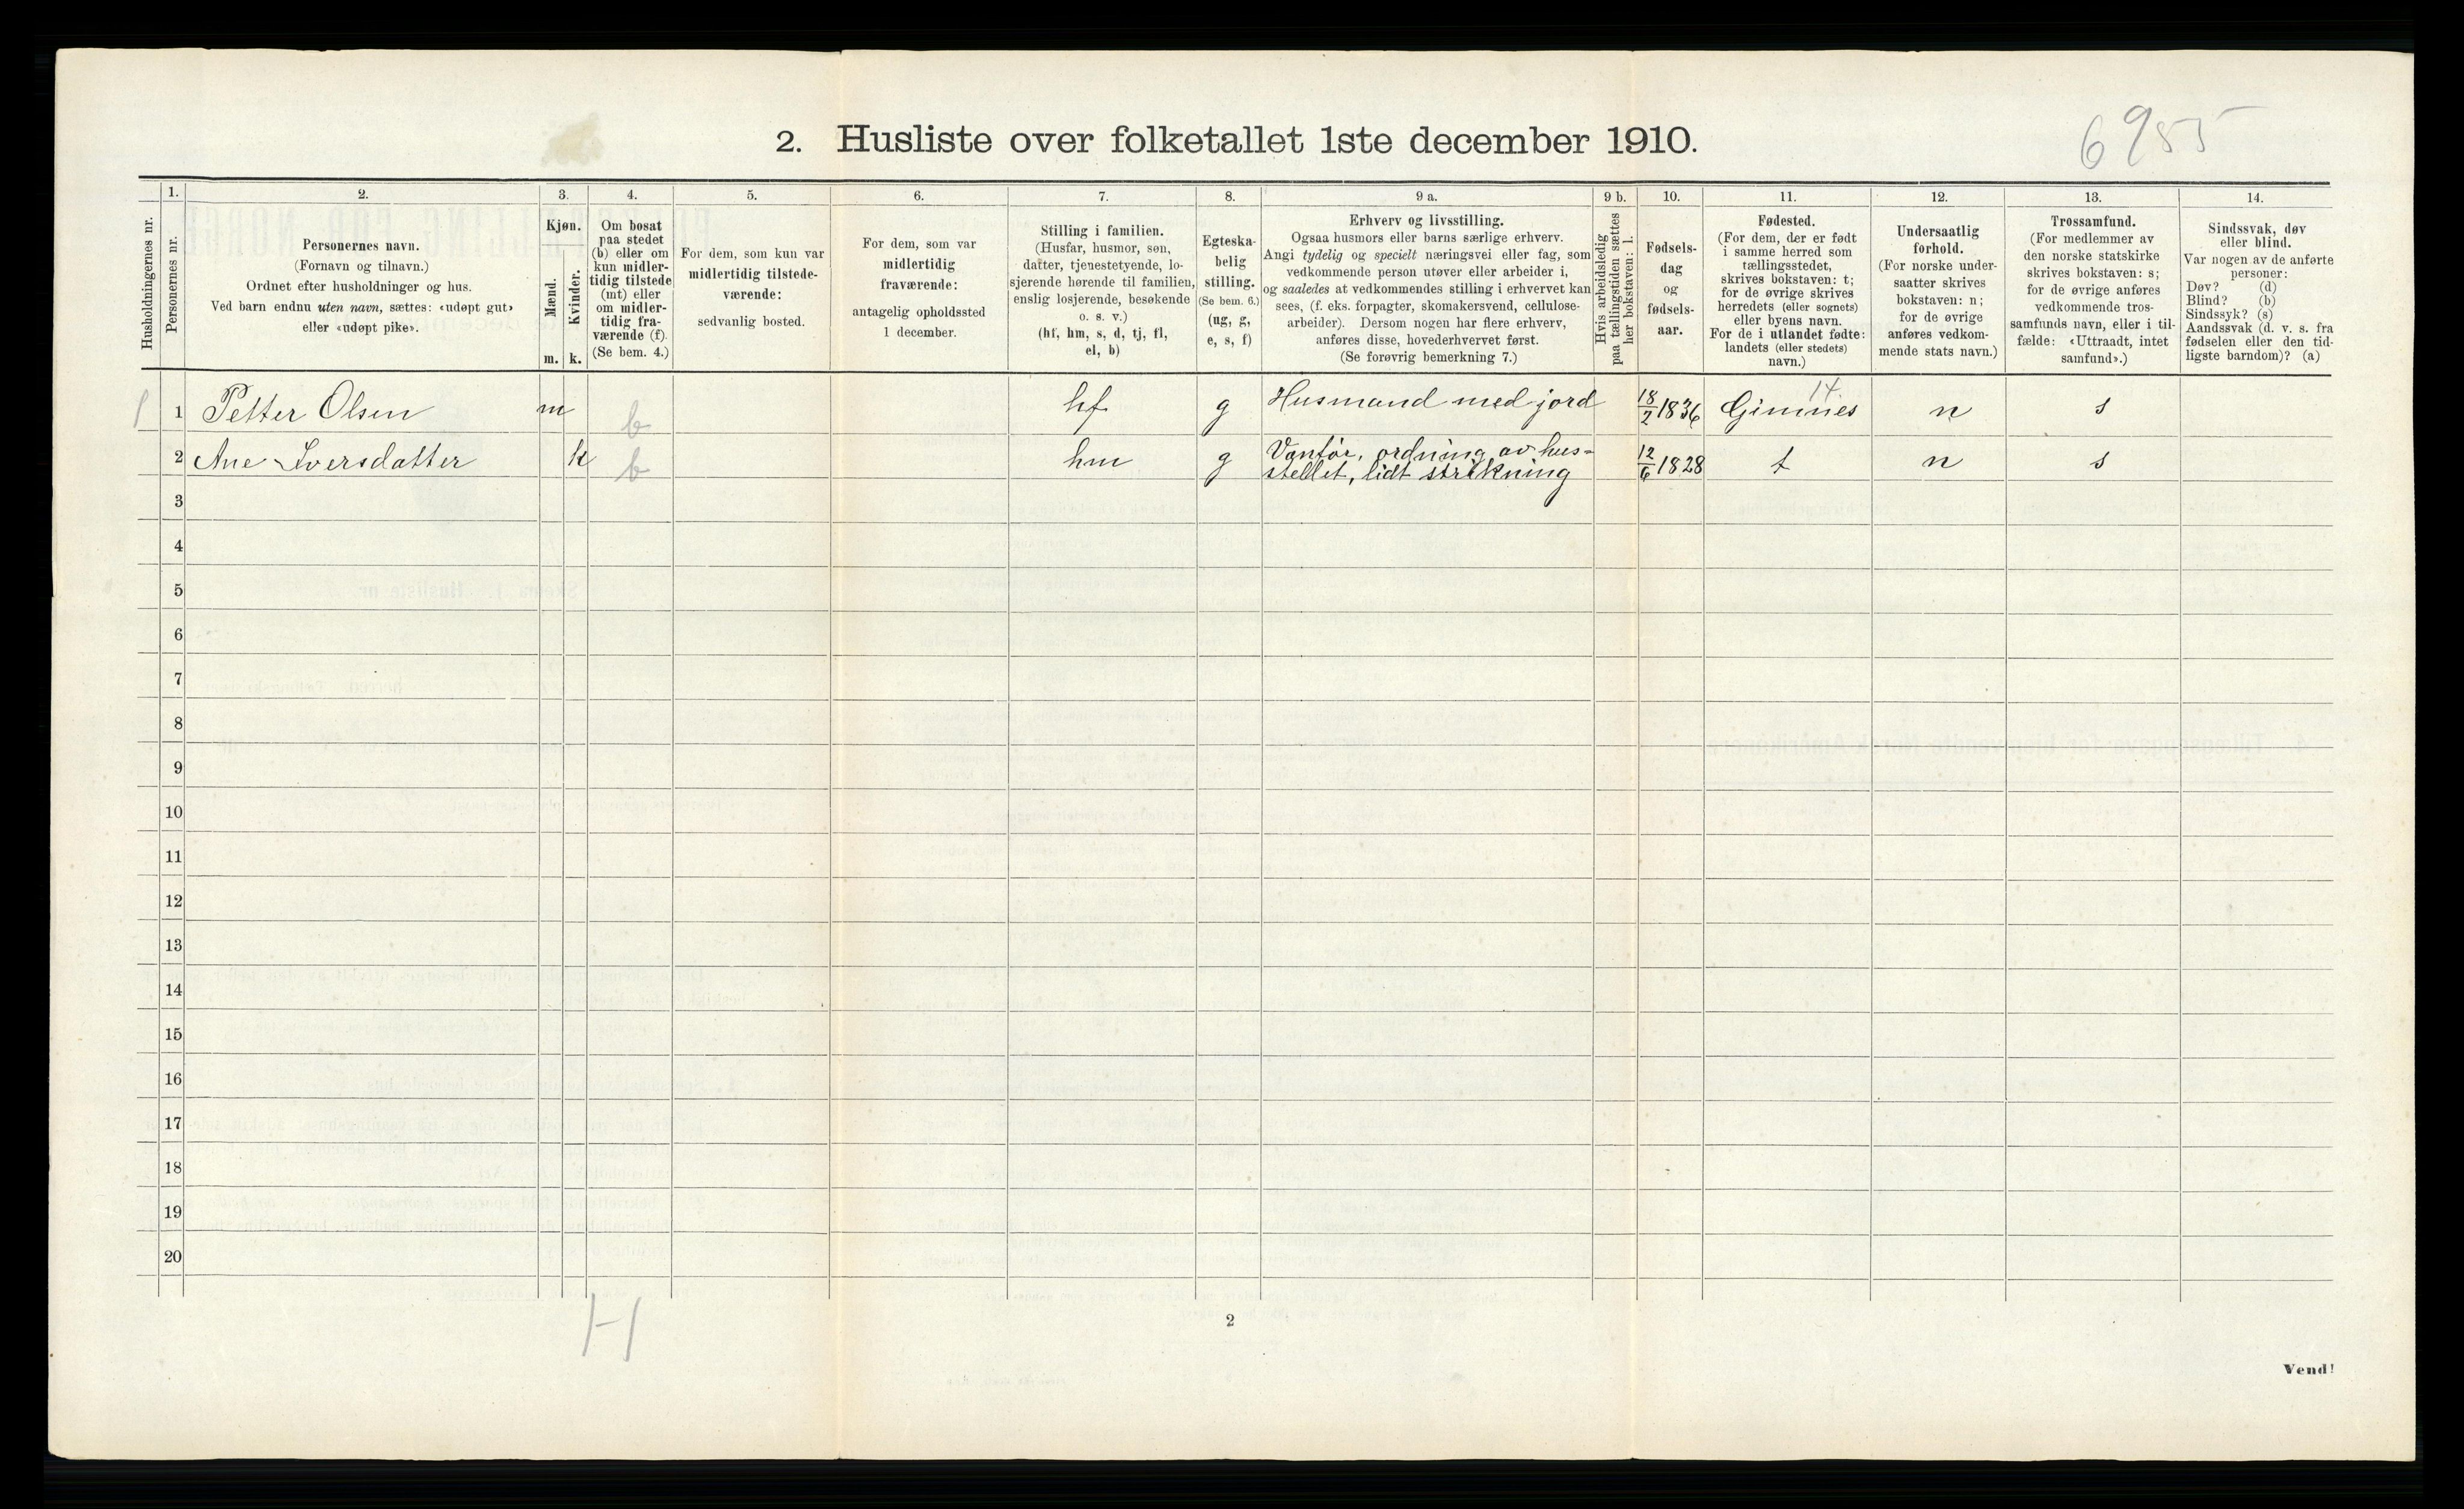 6985
2. Husliste over folketallet 1ste december 1910.
Husholdningernes nr.
1.
Personernes nr.
2.
Personernes navn.
(Fornavn og tilnavn.)
Ordnet efter husholdninger og hus.
Ved barn endnu uten navn, sættes: «udøpt gut»
eller «udøpt pike».
3.
Kjøn.
Mænd.
Kvinder.
m. k.
4.
Om bosat
paa stedet
(b) eller om
kun midler-
tidig tilstede
(mt) eller
om midler-
tidig fra-
værende (f).
(Se bem. 4.)
5.
For dem, som kun var
midlertidig tilstede-
værende:
sedvanlig bosted.
6.
For dem, som var
midlertidig
fraværende:
antagelig opholdssted
1 december.
7.
Stilling i familien.
(Husfar, husmor, søn,
datter, tjenestetyende, lo-
sjerende hørende til familien,
enslig losjerende, besøkende
o. s. v.)
(hf, hm, s, d, tj, fl,
el, b)
8.
Egteska-
belig
stilling.
(Se bem. 6.)
(ug, g,
e, s, f)
9 a.
Erhverv og livsstilling.
Ogsaa husmors eller barns særlige erhverv.
Angi tydelig og specielt næringsvei eller fag, som
vedkommende person utøver eller arbeider i,
og saaledes at vedkommendes stilling i erhvervet kan
sees, (f. eks. forpagter, skomakersvend, cellulose-
arbeider). Dersom nogen har flere erhverv,
anføres disse, hovederhvervet først.
(Se forøvrig bemerkning 7.)
9 b.
Hvis arbeidsledig
paa tællingstiden sættes
her bokstaven: l.
10.
Fødsels-
dag
og
fødsels-
aar.
11.
Fødested.
(For dem, der er født
i samme herred som
tællingsstedet,
skrives bokstaven: t;
for de øvrige skrives
herredets (eller sognets)
eller byens navn.
For de i utlandet fødte:
landets (eller stedets)
navn.)
12.
Undersaatlig
forhold.
(For norske under-
saatter skrives
bokstaven: n;
for de øvrige
anføres vedkom-
mende stats navn.)
13.
Trossamfund.
(For medlemmer av
den norske statskirke
skrives bokstaven: s;
for de øvrige anføres
vedkommende tros-
samfunds navn, eller i til-
fælde: «Uttraadt, intet
samfund».)
14.
Sindssvak, døv
eller blind.
Var nogen av de anførte
personer:
Døv? (d)
Blind? (b)
Sindssyk? (s)
Aandssvak (d. v. s. fra
fødselen eller den tid-
ligste barndom)? (a)
14
1 1 Petter Olsen m b hf g Husmand med jord 18/2 1836 Gimnes n s
2 Ane Iversdatter k b hm g Vanfør, ordning av hus-
stellet, lidt strikning 12/6 1828 t n s
3
4
5
6
7
8
9
10
11
12
13
14
15
16
17
18
19
20
1-1
2
Vend!